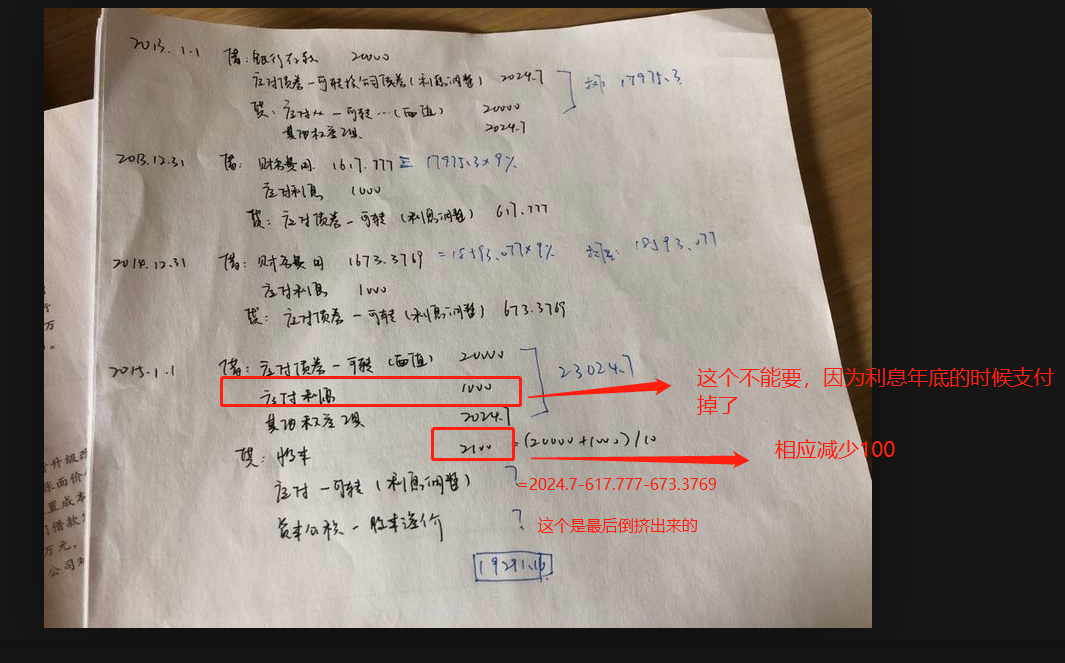 2013.1.1 借：银行存款 20000
应付债券-可转换公司债券(利息调整) 2024.7 ] 摊 17975.3
贷：应付债-可转…(面值) 20000
其他权益工具 2024.7
2013.12.31 借：财务费用 1617.777 = 17975.3×9%
应付利息 1000
贷：应付债券-可转(利息调整) 617.777
2014.12.31 借：财务费用 1673.3769 = 18593.077×9% 18593.077
应付利息 1000
贷：应付债券-可转(利息调整) 673.3769
2015.1.1 借：应付债券-可转(面值) 20000
应付利息 1000 ] 23024.7 这个不能要，因为利息年底的时候支付
掉了
其他权益工具 2024.7
贷：股本 2100 =(20000+1000)/10 相应减少100
应付-可转(利息调整) ? =2024.7-617.777-673.3769
资本公积-股本溢价 ? 这个是最后倒挤出来的
19291.16
升级改
张面价
置成本
借款
万元，
公司对